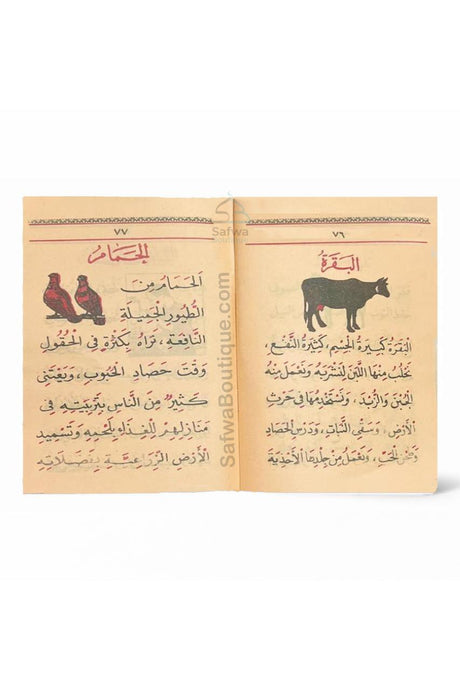 ٧٦
البَقَرَةُ
البَقَرَةُ كَبِيرَةُ الجِسْمِ، كَثِيرَةُ النَّفْعِ،
نَحْلُبُ مِنْهَا اللَّبَنَ لِنَشْرَبَهُ وَنَعْمَلَ مِنْهُ
الجُبْنَ وَالزُّبْدَ، وَنَسْتَخْدِمُهَا فِي حَرْثِ
الأَرْضِ، وَسَقْيِ النَّبَاتِ، وَدَرْسِ الحَصَادِ
الحَبِّ، وَنَعْمَلُ مِنْ جِلْدِهَا الأَحْذِيَةَ
٧٧
الحَمَامُ
الحَمَامُ مِنَ
الطُّيُورِ الجَمِيلَةِ
النَّافِعَةِ، نَرَاهُ بِكَثْرَةٍ فِي الحُقُولِ
وَقْتَ حَصَادِ الحُبُوبِ، وَيَعْتَنِي
كَثِيرٌ مِنَ النَّاسِ بِتَرْبِيَتِهِ فِي
مَنَازِلِهِمْ لِلْغِذَاءِ بِلَحْمِهِ وَتَسْمِيدِ
الأَرْضِ الزِّرَاعِيَّةِ بِفَضَلَاتِهِ
Safwa
SafwaBoutique.com